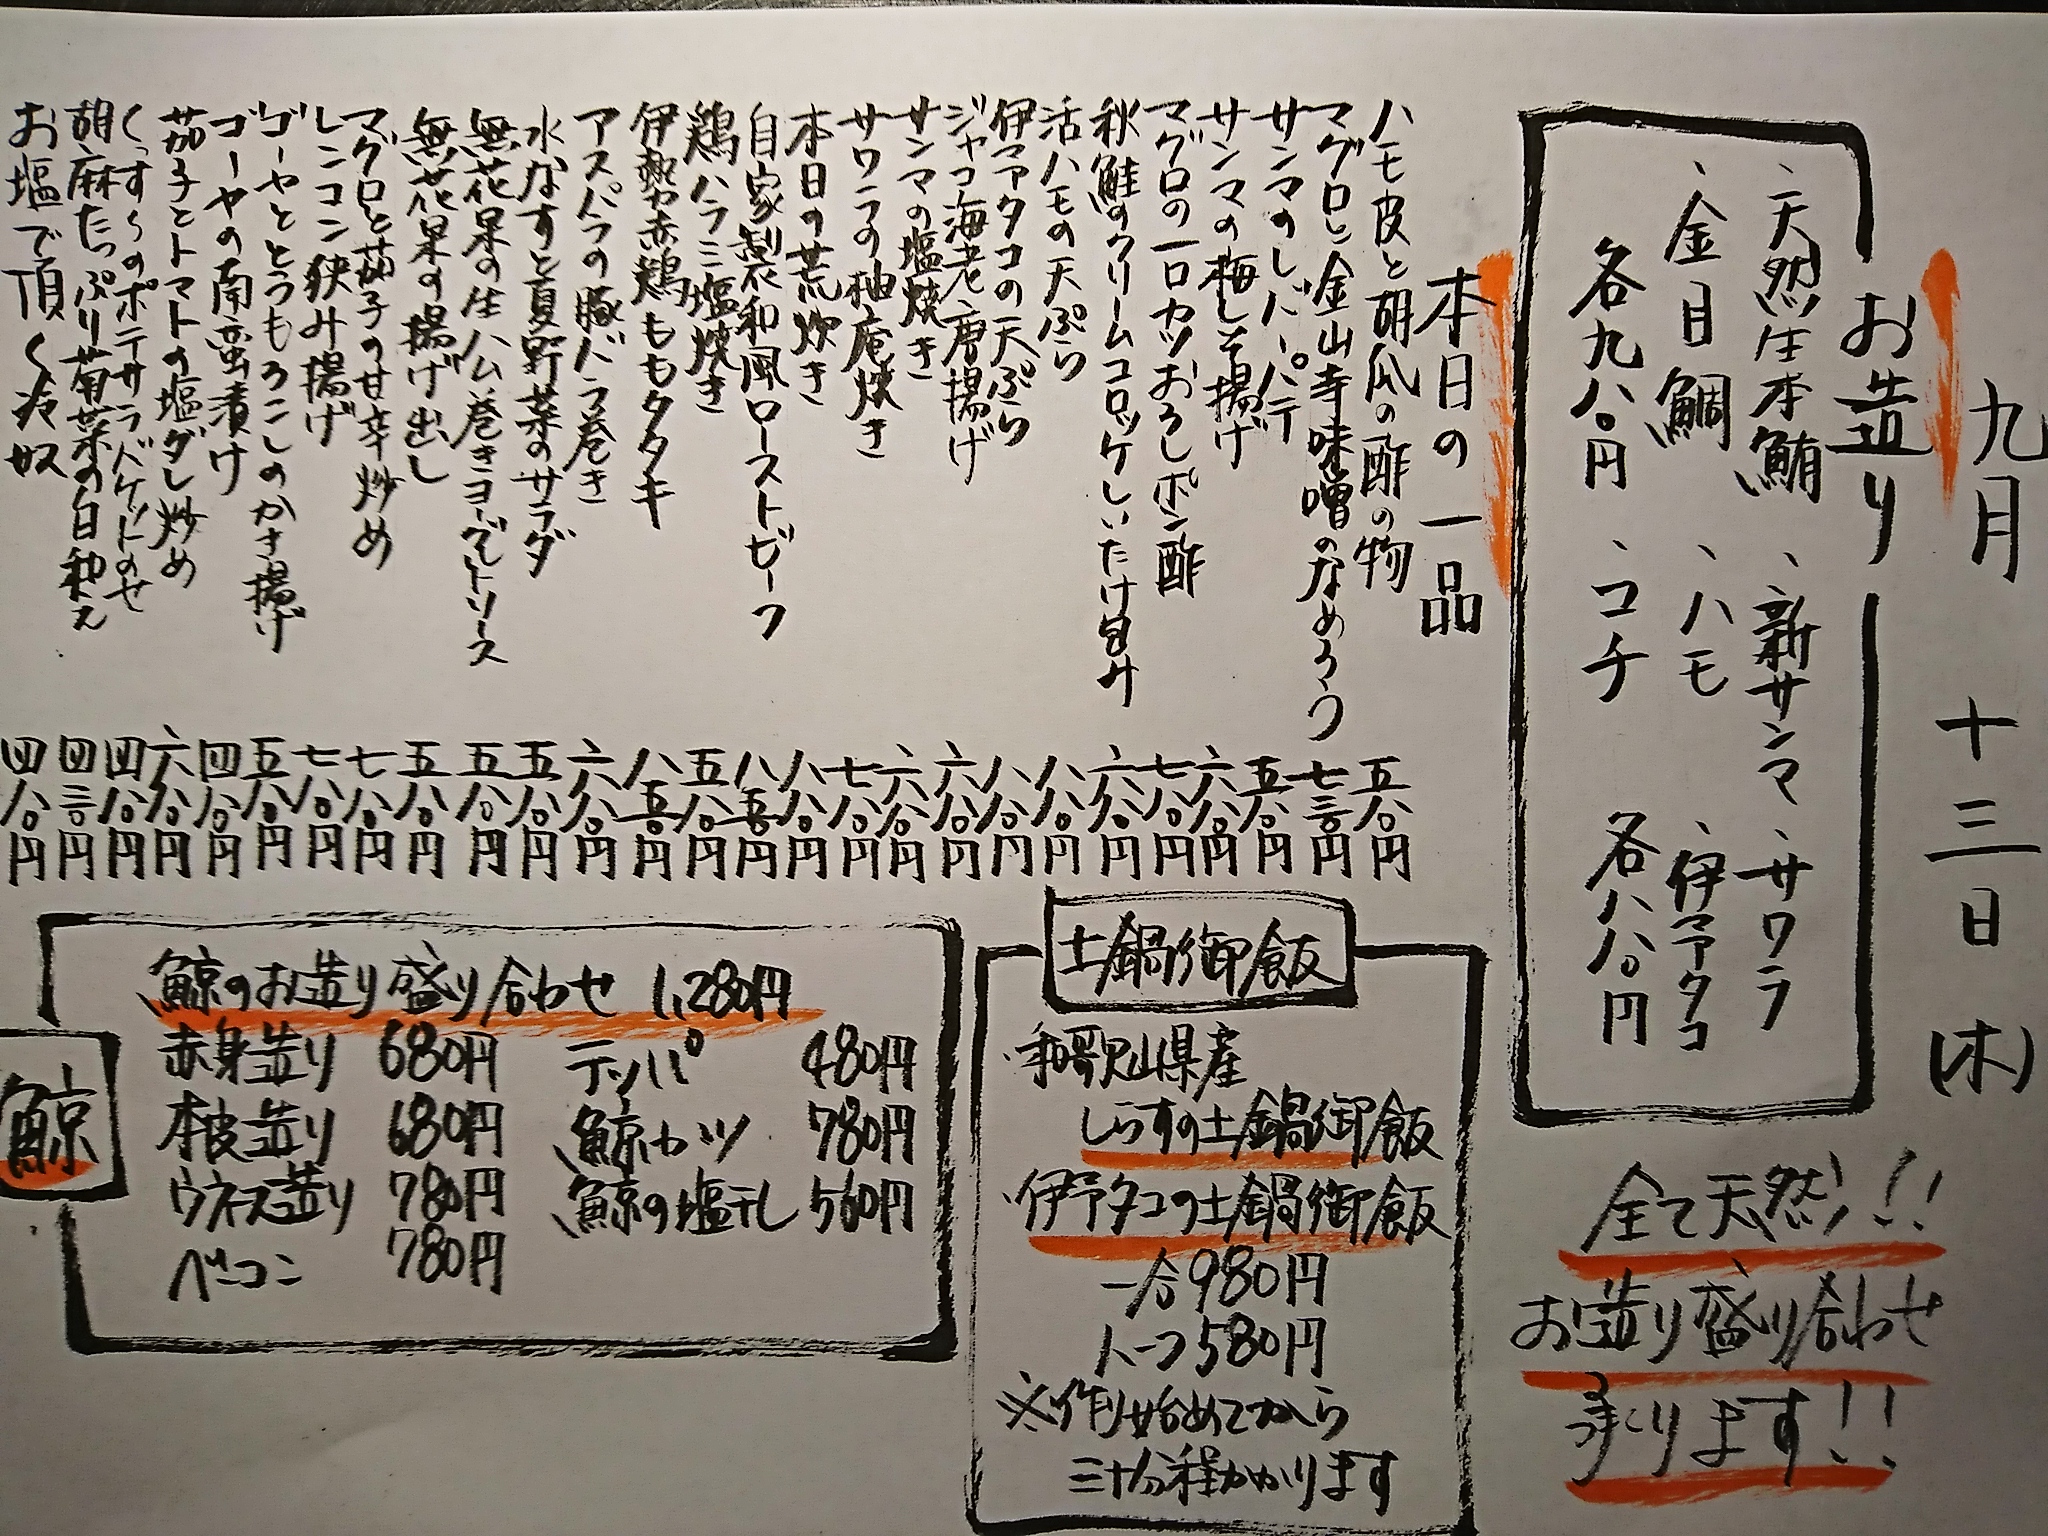 九月 十三日(木)
お造り
、天然生本鮪 、新サンマ 、サワラ
、金目鯛 、ハモ 、伊予タコ
各九八〇円 、コチ 各八八〇円
全て天然!!
お造り盛り合わせ
承ります!!
本日の一品
ハモ皮と胡瓜の酢の物 五八〇円
マグロと金山寺味噌のなめろう 七三〇円
サンマのレバーパテ 五八〇円
サンマの梅しそ揚げ 六八〇円
マグロの一口カツおろしポン酢 七八〇円
秋鮭のクリームコロッケしいたけ包み 六八〇円
活ハモの天ぷら 八八〇円
伊予タコの天ぷら 八八〇円
ジャコ海老唐揚げ 六八〇円
サンマの塩焼き 六八〇円
サワラの柚庵焼き 七八〇円
本日の荒炊き 八八〇円
自家製和風ローストビーフ 八五〇円
鶏ハラミ塩焼き 五八〇円
伊勢赤鶏ももタタキ 八五〇円
アスパラの豚バラ巻き 六八〇円
水なすと夏野菜のサラダ 五八〇円
無花果の生ハム巻きヨーグルトソース 五八〇円
無花果の揚げ出し 五八〇円
マグロと茄子の甘辛炒め 七八〇円
レンコン狭み揚げ 七八〇円
ゴーヤととうもろこしのかき揚げ 五八〇円
ゴーヤの南蛮漬け 四八〇円
茄子とトマトの塩ダレ炒め 六八〇円
くっすくのポテサラバケットのせ 四八〇円
胡麻たっぷり菊菜の白和え 四三〇円
お塩で頂く冷奴 四八〇円
土鍋御飯
・和歌山県産
しらすの土鍋御飯
・伊予タコの土鍋御飯
一合980円
ハーフ580円
※作り始めてから
三十分程かかります
鯨
鯨のお造り盛り合わせ 1,280円
赤身造り 680円 テッパ 480円
本皮造り 680円 鯨カツ 780円
ウネス造り 780円 鯨の塩干し 560円
ベーコン 780円